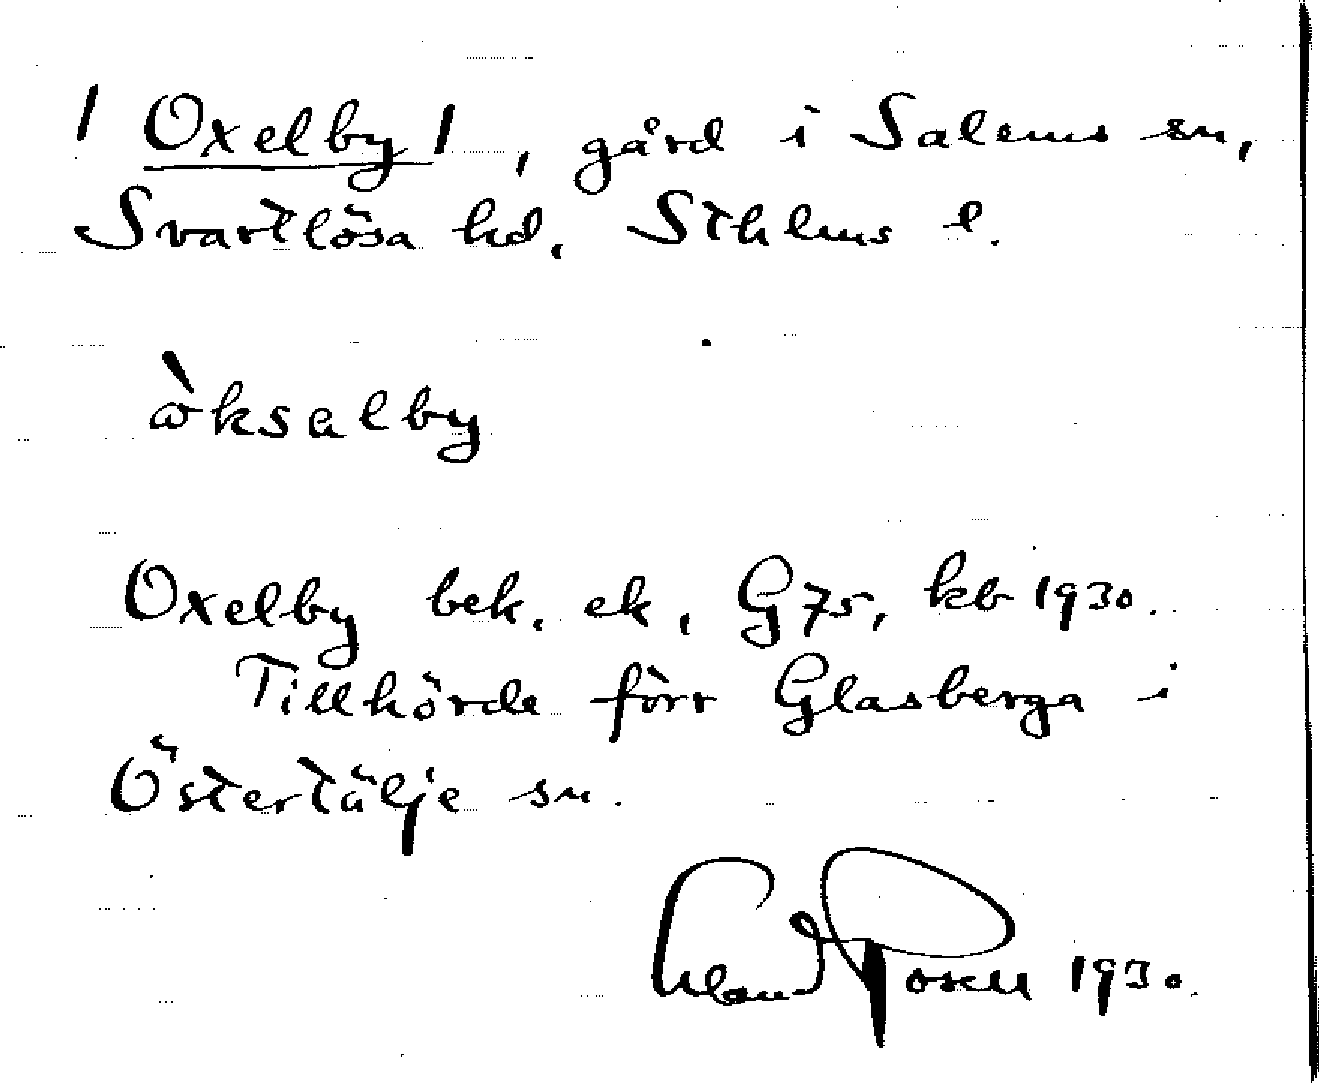 / Oxelby /, gård i Salems sn,
Svartlösa hd, Sthlms l.
òksalby
Oxelby bek. ek, G 75, kb 1930.
Tillhörde förr Glasberga i
Östertälje sn.
1930.